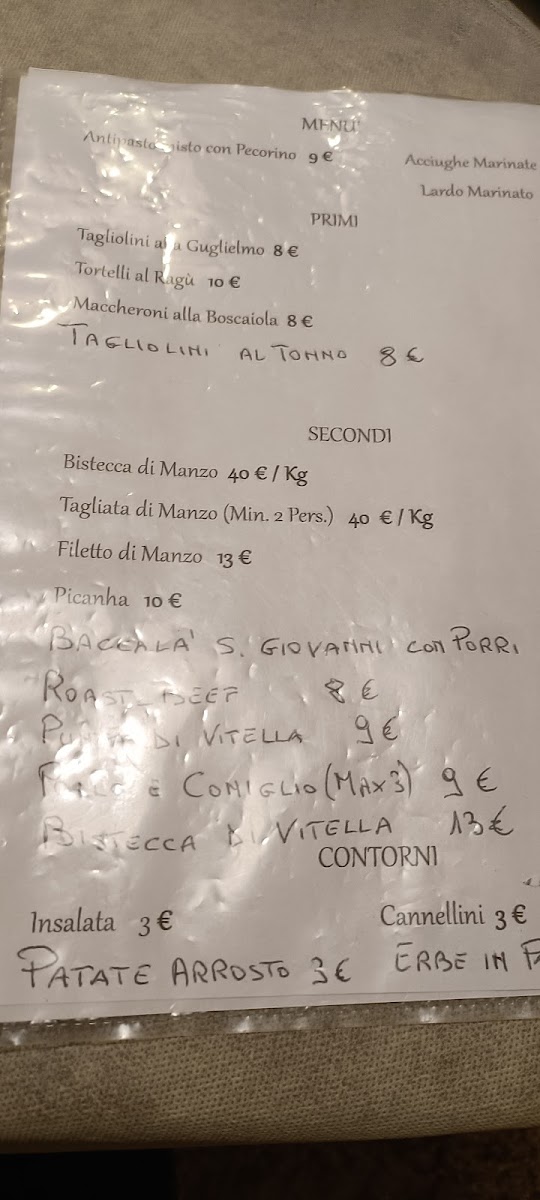 MENU'
Antipasto misto con Pecorino 9 €
Acciughe Marinate
Lardo Marinato
PRIMI
Tagliolini alla Guglielmo 8 €
Tortelli al Ragù 10 €
Maccheroni alla Boscaiola 8 €
TAGLIOLINI AL TONNO 8 €
SECONDI
Bistecca di Manzo 40 € / Kg
Tagliata di Manzo (Min. 2 Pers.) 40 € / Kg
Filetto di Manzo 13 €
Picanha 10 €
BACCALA' S. GIOVANNI CON PORRI
ROAST-BEEF 8 €
DI VITELLA 9 €
E CONIGLIO (MAX 3) 9 €
BISTECCA DI VITELLA 13 €
CONTORNI
Insalata 3 €
Cannellini 3 €
PATATE ARROSTO 3 €
ERBE IN